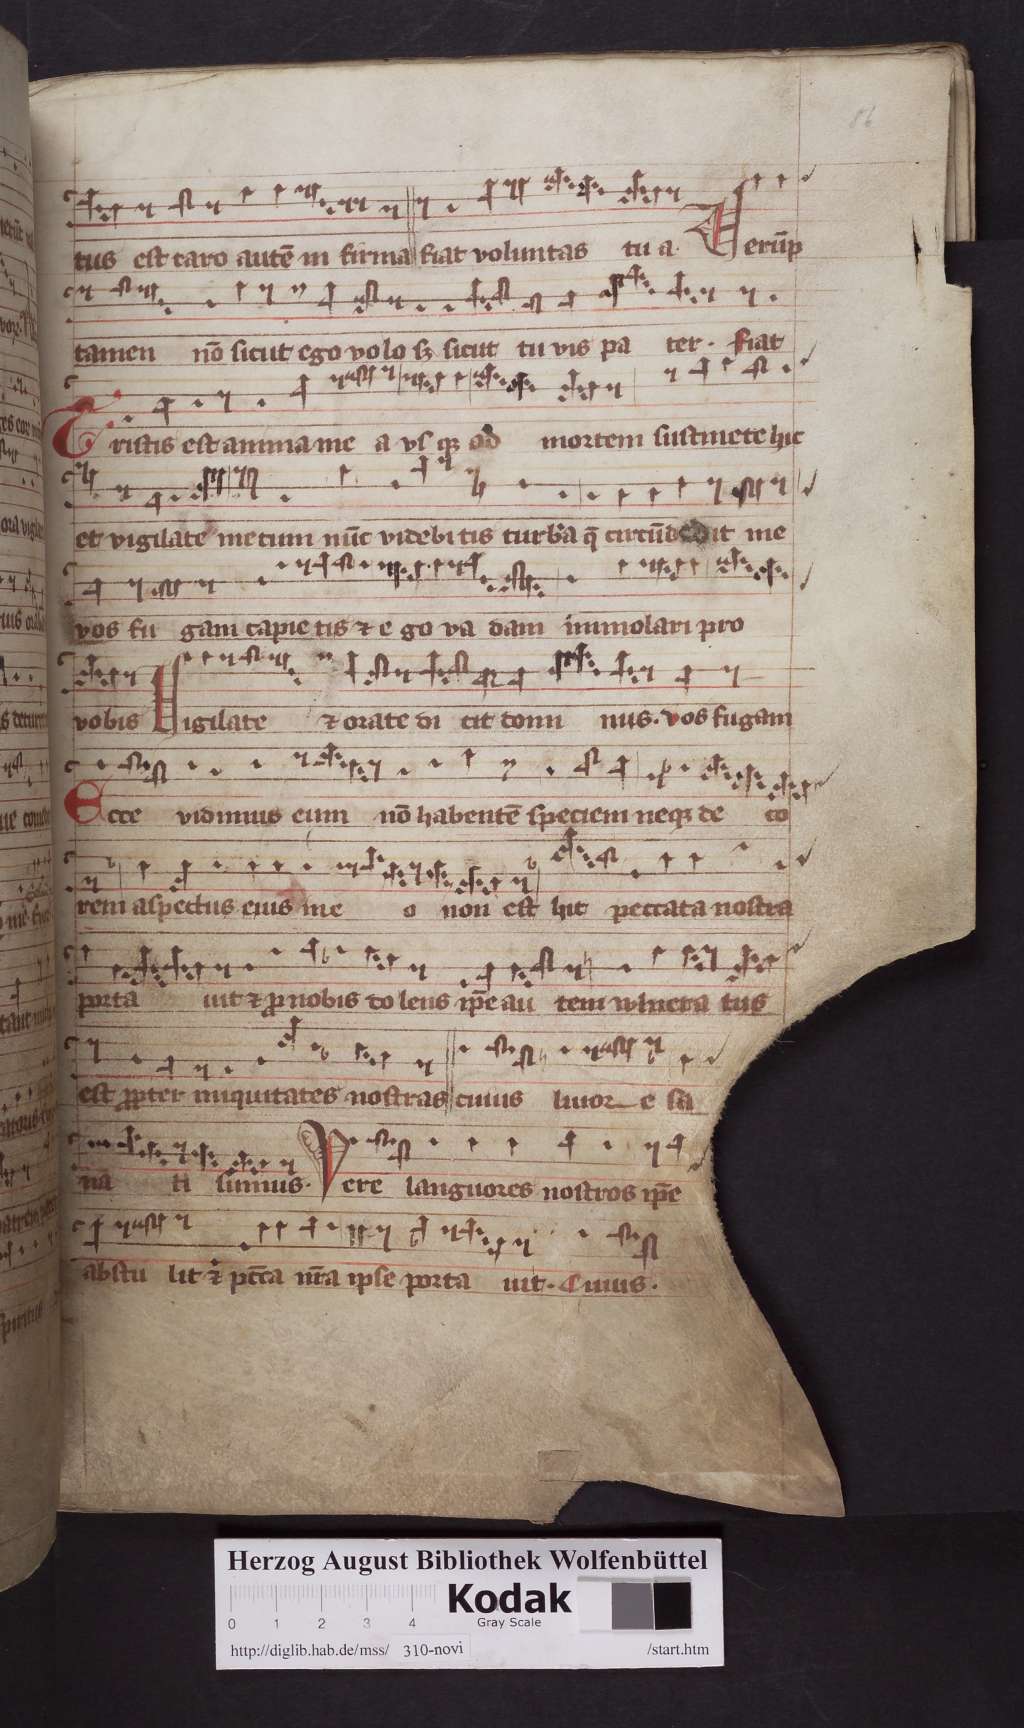 86
tus est caro autē in firma fiat voluntas tu a. Uerūp
tamen nō sicut ego volo sz sicut tu vis pa ter. fiat
Tristis est anima me a vsqz ad mortem sustinete hic
et vigilate mecum nūc videbitis turba q̄ circūdedit me
vos fu gam capie tis ⁊ e go va dam immolari pro
vobis Vigilate ⁊ orate di cit domi nus. vos fugam
Ecce vidimus eum nō habentē speciem neqz de co
rem aspectus eius in e o non est hic peccata nostra
porta uit ⁊ p nobis do lens ip̄e au tem vulnera tus
est ppter iniquitates nostras cuius liuor e sa
na ti sumus. Vere languores nostros ip̄e
abstu lit ⁊ pctā nrā ipse porta uit. Cuius.
Herzog August Bibliothek Wolfenbüttel
0 1 2 3 4
Kodak
Gray Scale
http://diglib.hab.de/mss/ 310-novi /start.htm